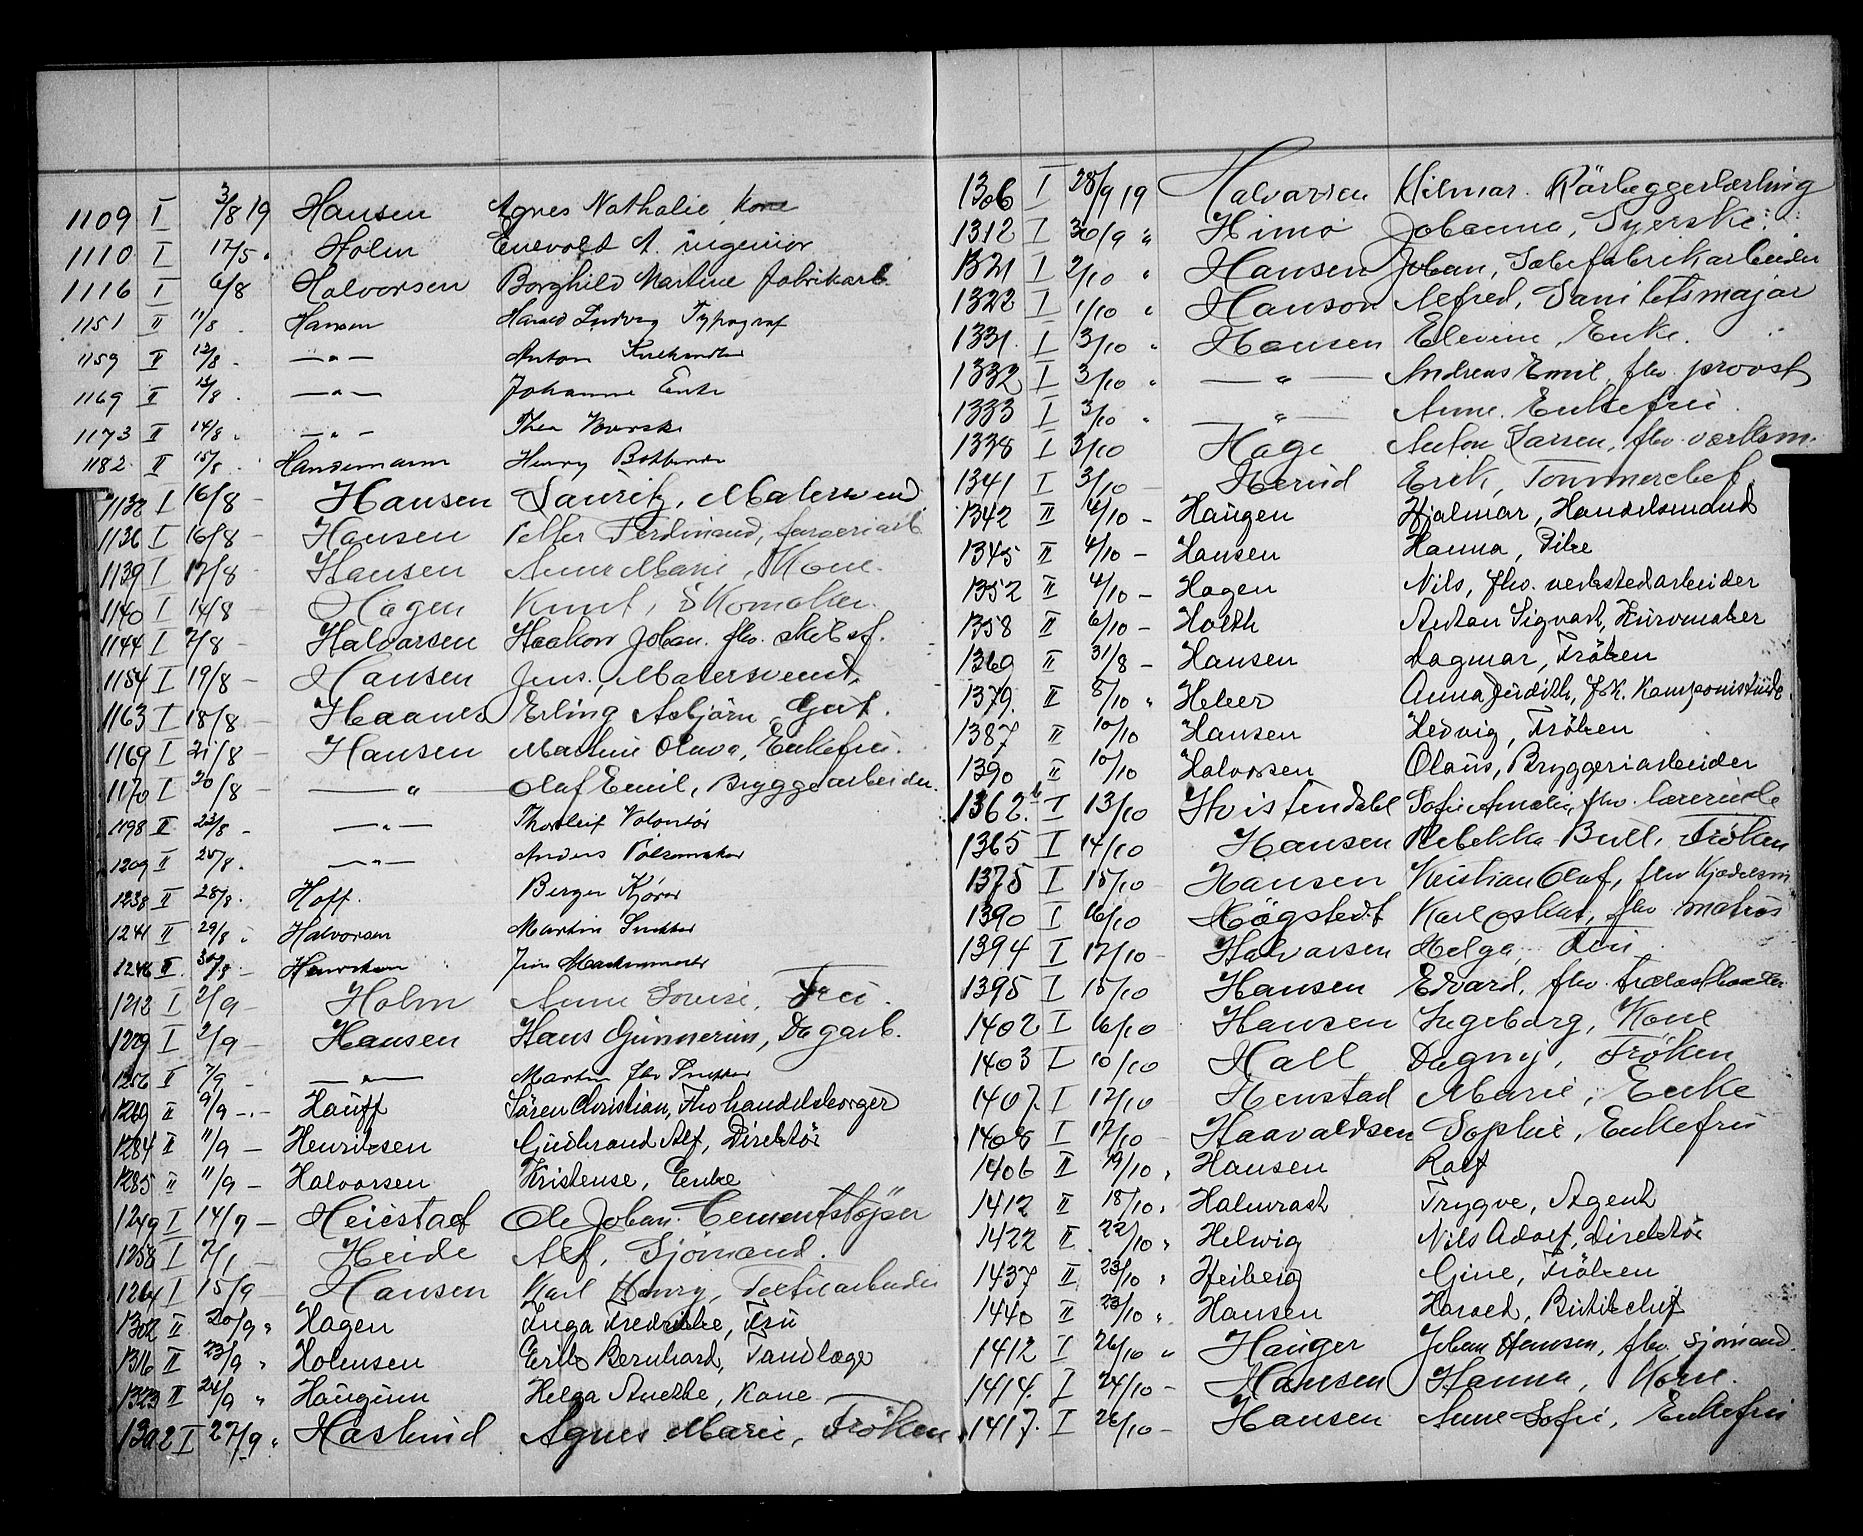 1109 I 3/8 19 Hansen Agnes Nathalie, Kone
1110 I 17/5 " Holm Enevold A. ingeniør
1116 I 6/8 Halvorsen Borghild Martine fabrikarb.
1151 II 11/8 - Hansen Harald Ludvig Typograf
1159 II 12/8 - — " — Anton
1169 II 13/8 - — " — Johanne Enke
1173 II 14/8 " — " — Thea
1182 II 15/8 - Handemann Henry Bokbinder
1132 I 16/8 - Hansen Lauritz, Malersvend
1136 I 16/8 - Hansen Petter Ferdinand, farveriarb.
1139 I 17/8 - Hansen Anne Marie, Kone.
1140 I 14/8 - Hagen Knut, Skomaker.
1144 I 7/8 - Halvorsen Haakon Johan. fhv. skibsf.
1154 I 19/8 - Hansen Jens, Malersvend,
1163 I 18/8 - Haanes Erling Asbjørn, Gut.
1169 I 21/8 - Hansen Mathine Olava, Enkefru.
1170 I 20/8 - — " — Olaf Emil, Bryggearbeider.
1198 II 23/8 - — " — Thorleif Volontør
1209 II 25/8 - — " — Anders Pølsemaker
1238 II 28/8 - Hoff Berger Kjører
1241 II 29/8 " Halvorsen Martin Snekker
1246 II 30/8 - Henriksen Jens
1212 I 2/9 - Holm Anne Lovise, Fru.
1229 I 2/9 - Hansen Hans Gunnerius, Dagarb.
1256 II 7/9 - — " — Martin fhv Snekker
1269 II 9/9 - Hauff Sören Christian, Fhv handelsborger
1284 II 11/9 - Henriksen Gudbrand Alf, Direktör
1285 II 11/9 - Halvorsen Kristense, Enke
1249 I 14/9 - Heiestad Ole Johan. Cementstøper
1258 I 7/1 - Heide Alf, Sjömand.
1264 I 15/9 - Hansen Karl Henry,
1302 II 20/9 " Hagen Inga Fredrikke, Fru
1316 II 23/9 " Holmsen Erik Bernhard, Tandlæge
1323 II 24/9 " Haugum Helga Anethe, Kone
1302 I 27/9 " Haslund Agnes Marie, Frøken
1306 I 28/9 19 Halvorsen Hilmar. Rörlæggerlærling
1312 I 30/9 " Himo Johanna, Syerske.
1321 I 2/10 " Hansen Johan, Sæbefabrikarbeider
1322 I 1/10 " Hanson Alfred, Sanitetsmajor
1331. I 3/10 " Hansen Elevine, Enke.
1332 I 3/10 " — " — Andreas Emil, fhv. provst
1333 I 3/10 " — " — Anne. Enkefru.
1338 I 3/10 Hage Anton Larsen, fhv. værksm.
1341 I 3/10 - Herud Erik, Tømmerchef.
1342 II 4/10 - Haugen Hjalmar, Handelsmand
1345 II 4/10 - Hansen Hanna, Pike
1352 II 4/10 - Hagen Nils, fhv. verkstedarbeider
1358 II 6/10 - Holth Anton Sigvart, Kurvmaker
1369 II 31/8 - Hansen Dagmar, Fröken
1379. II 8/10 " Heber Anna Judith, Frk. Komponistinde
1387 II 10/10 Hansen Hedvig, Fröken
1390 II 10/10 Halvorsen Olaus, Bryggeriarbeider
1362.b I 13/10 Hvistendahl Sofie Amalie, fhv. lærerinde
1365 I 14/10 Hansen Rebekka Bull, Frøken
1375 I 15/10 - Hansen Kristian Olaf, fhv Kjedelsm.
1390 I 16/10 Högstedt Karl Oskar, fhv matros
1394 I 17/10 - Halvorsen Helga, Fru
1395 I 15/10 Hansen Edvard, fhv.
1402 I 16/10 Hansen Ingeborg, Kone
1403 I 10/10 Hall Dagny, Frøken
1407. I 17/10 - Henstad Marie, Enke
1408 I 17/10 - Haavaldsen Sophie, Enkefru
1406 II 19/10 " Hansen Rolf
1412 II 18/10 " Halmrast Trygve, Agent
1422 II 22/10 " Helwig Nils Adolf, Direktör
1437 II 23/10 " Heiberg Gine, Fröken
1440 II 23/10 " Hansen Harald, Butikchef
1412 I 26/10 " Hauger Johan Hansen, fhv. sjömand.
1414. I 24/10 - Hansen Hanna, Kone.
1417. I 26/10 - Hansen Anne Sofie, Enkefru